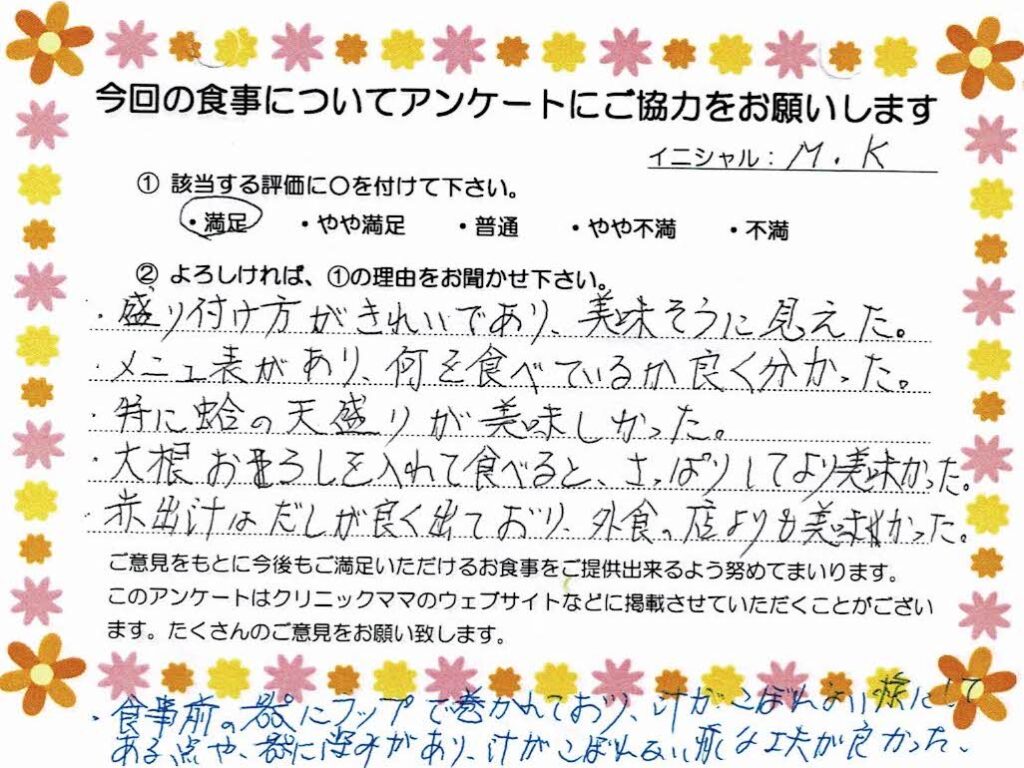 今回の食事についてアンケートにご協力をお願いします
イニシャル： M.K
① 該当する評価に〇を付けて下さい。
・満足 ・やや満足 ・普通 ・やや不満 ・不満
② よろしければ、①の理由をお聞かせ下さい。
・盛り付け方がきれいであり、美味そうに見えた。
・メニュー表があり、何を食べているか良く分かった。
・特に蛤の天盛りが美味しかった。
・大根おろしを入れて食べると、さっぱりしてより美味かった。
・赤出汁はだしが良く出ており、外食の店よりも美味かった。
ご意見をもとに今後もご満足いただけるお食事をご提供出来るよう努めてまいります。
このアンケートはクリニックママのウェブサイトなどに掲載させていただくことがござい
ます。たくさんのご意見をお願い致します。
・食事前の器にラップで巻かれており、汁がこぼれない様にして
ある点や、器に深みがあり、汁がこぼれない様な工夫が良かった。